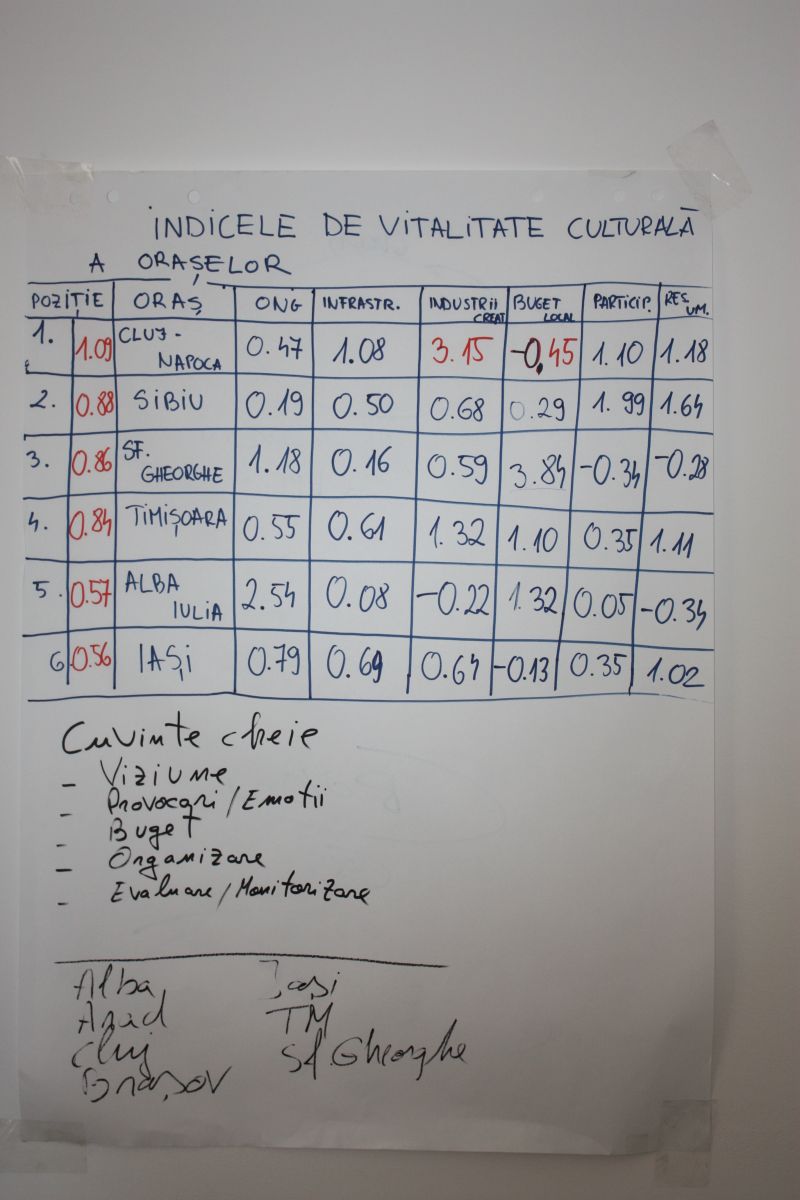 INDICELE DE VITALITATE CULTURALĂ
A ORAȘELOR
POZIȚIE ORAȘ ONG INFRASTR. INDUSTRII CREAT BUGET LOCAL PARTICIP. RES. UM.
1. 1.09 CLUJ-NAPOCA 0.47 1.08 3.15 -0.45 1.10 1.18
2. 0.88 SIBIU 0.19 0.50 0.68 0.29 1.99 1.64
3. 0.86 SF. GHEORGHE 1.18 0.16 0.59 3.84 -0.34 -0.28
4. 0.84 TIMIȘOARA 0.55 0.61 1.32 1.10 0.35 1.11
5. 0.57 ALBA IULIA 2.54 0.08 -0.22 1.32 0.05 -0.34
6 0.56 IAȘI 0.79 0.69 0.64 -0.13 0.35 1.02
Cuvinte cheie
- Viziune
- Provocari/Emotii
- Buget
- Organizare
- Evaluare/Monitorizare
Alba Iași
Arad TM
Cluj Sf. Gheorghe
Brașov